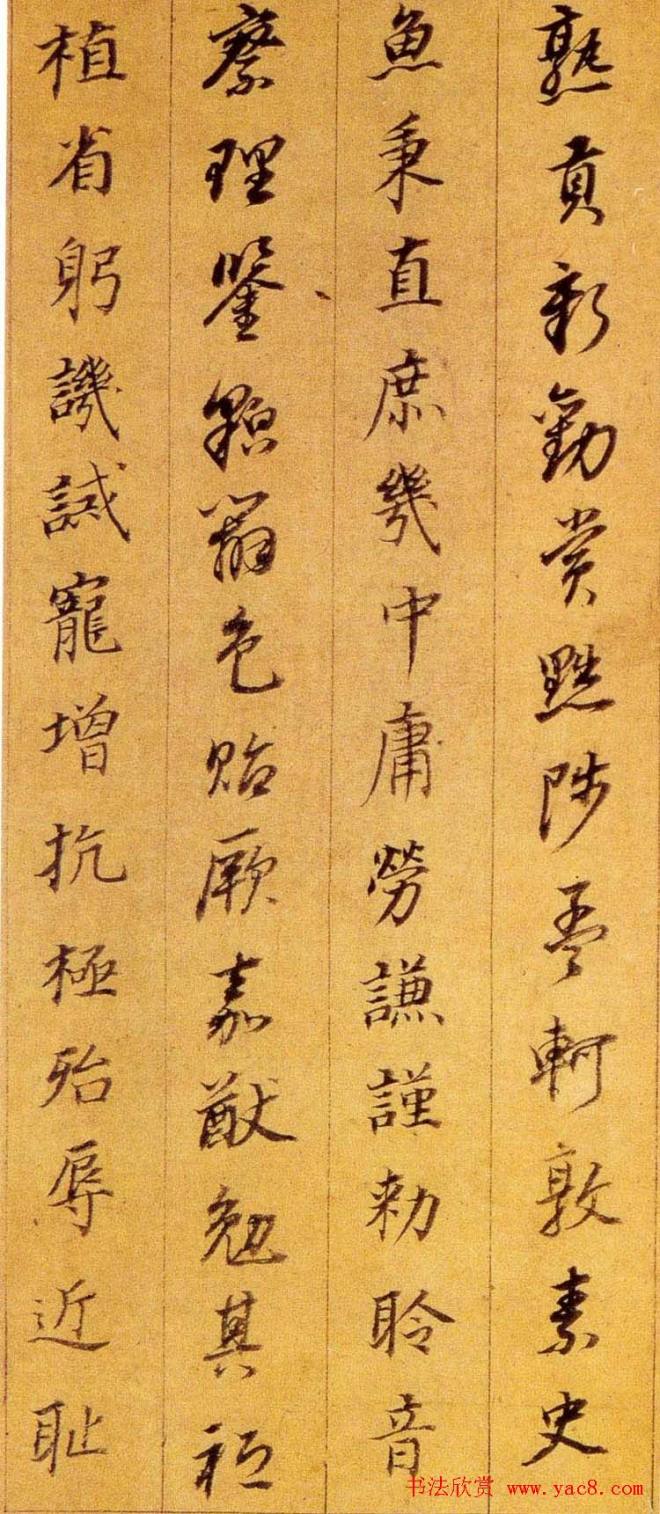 熟貢新勸賞黜陟孟軻敦素史
魚秉直庶幾中庸勞謙謹勑聆音
察理鑒貌辯色貽厥嘉猷勉其祗
植省躬譏誡寵增抗極殆辱近耻
书法欣赏 www.yac8.com